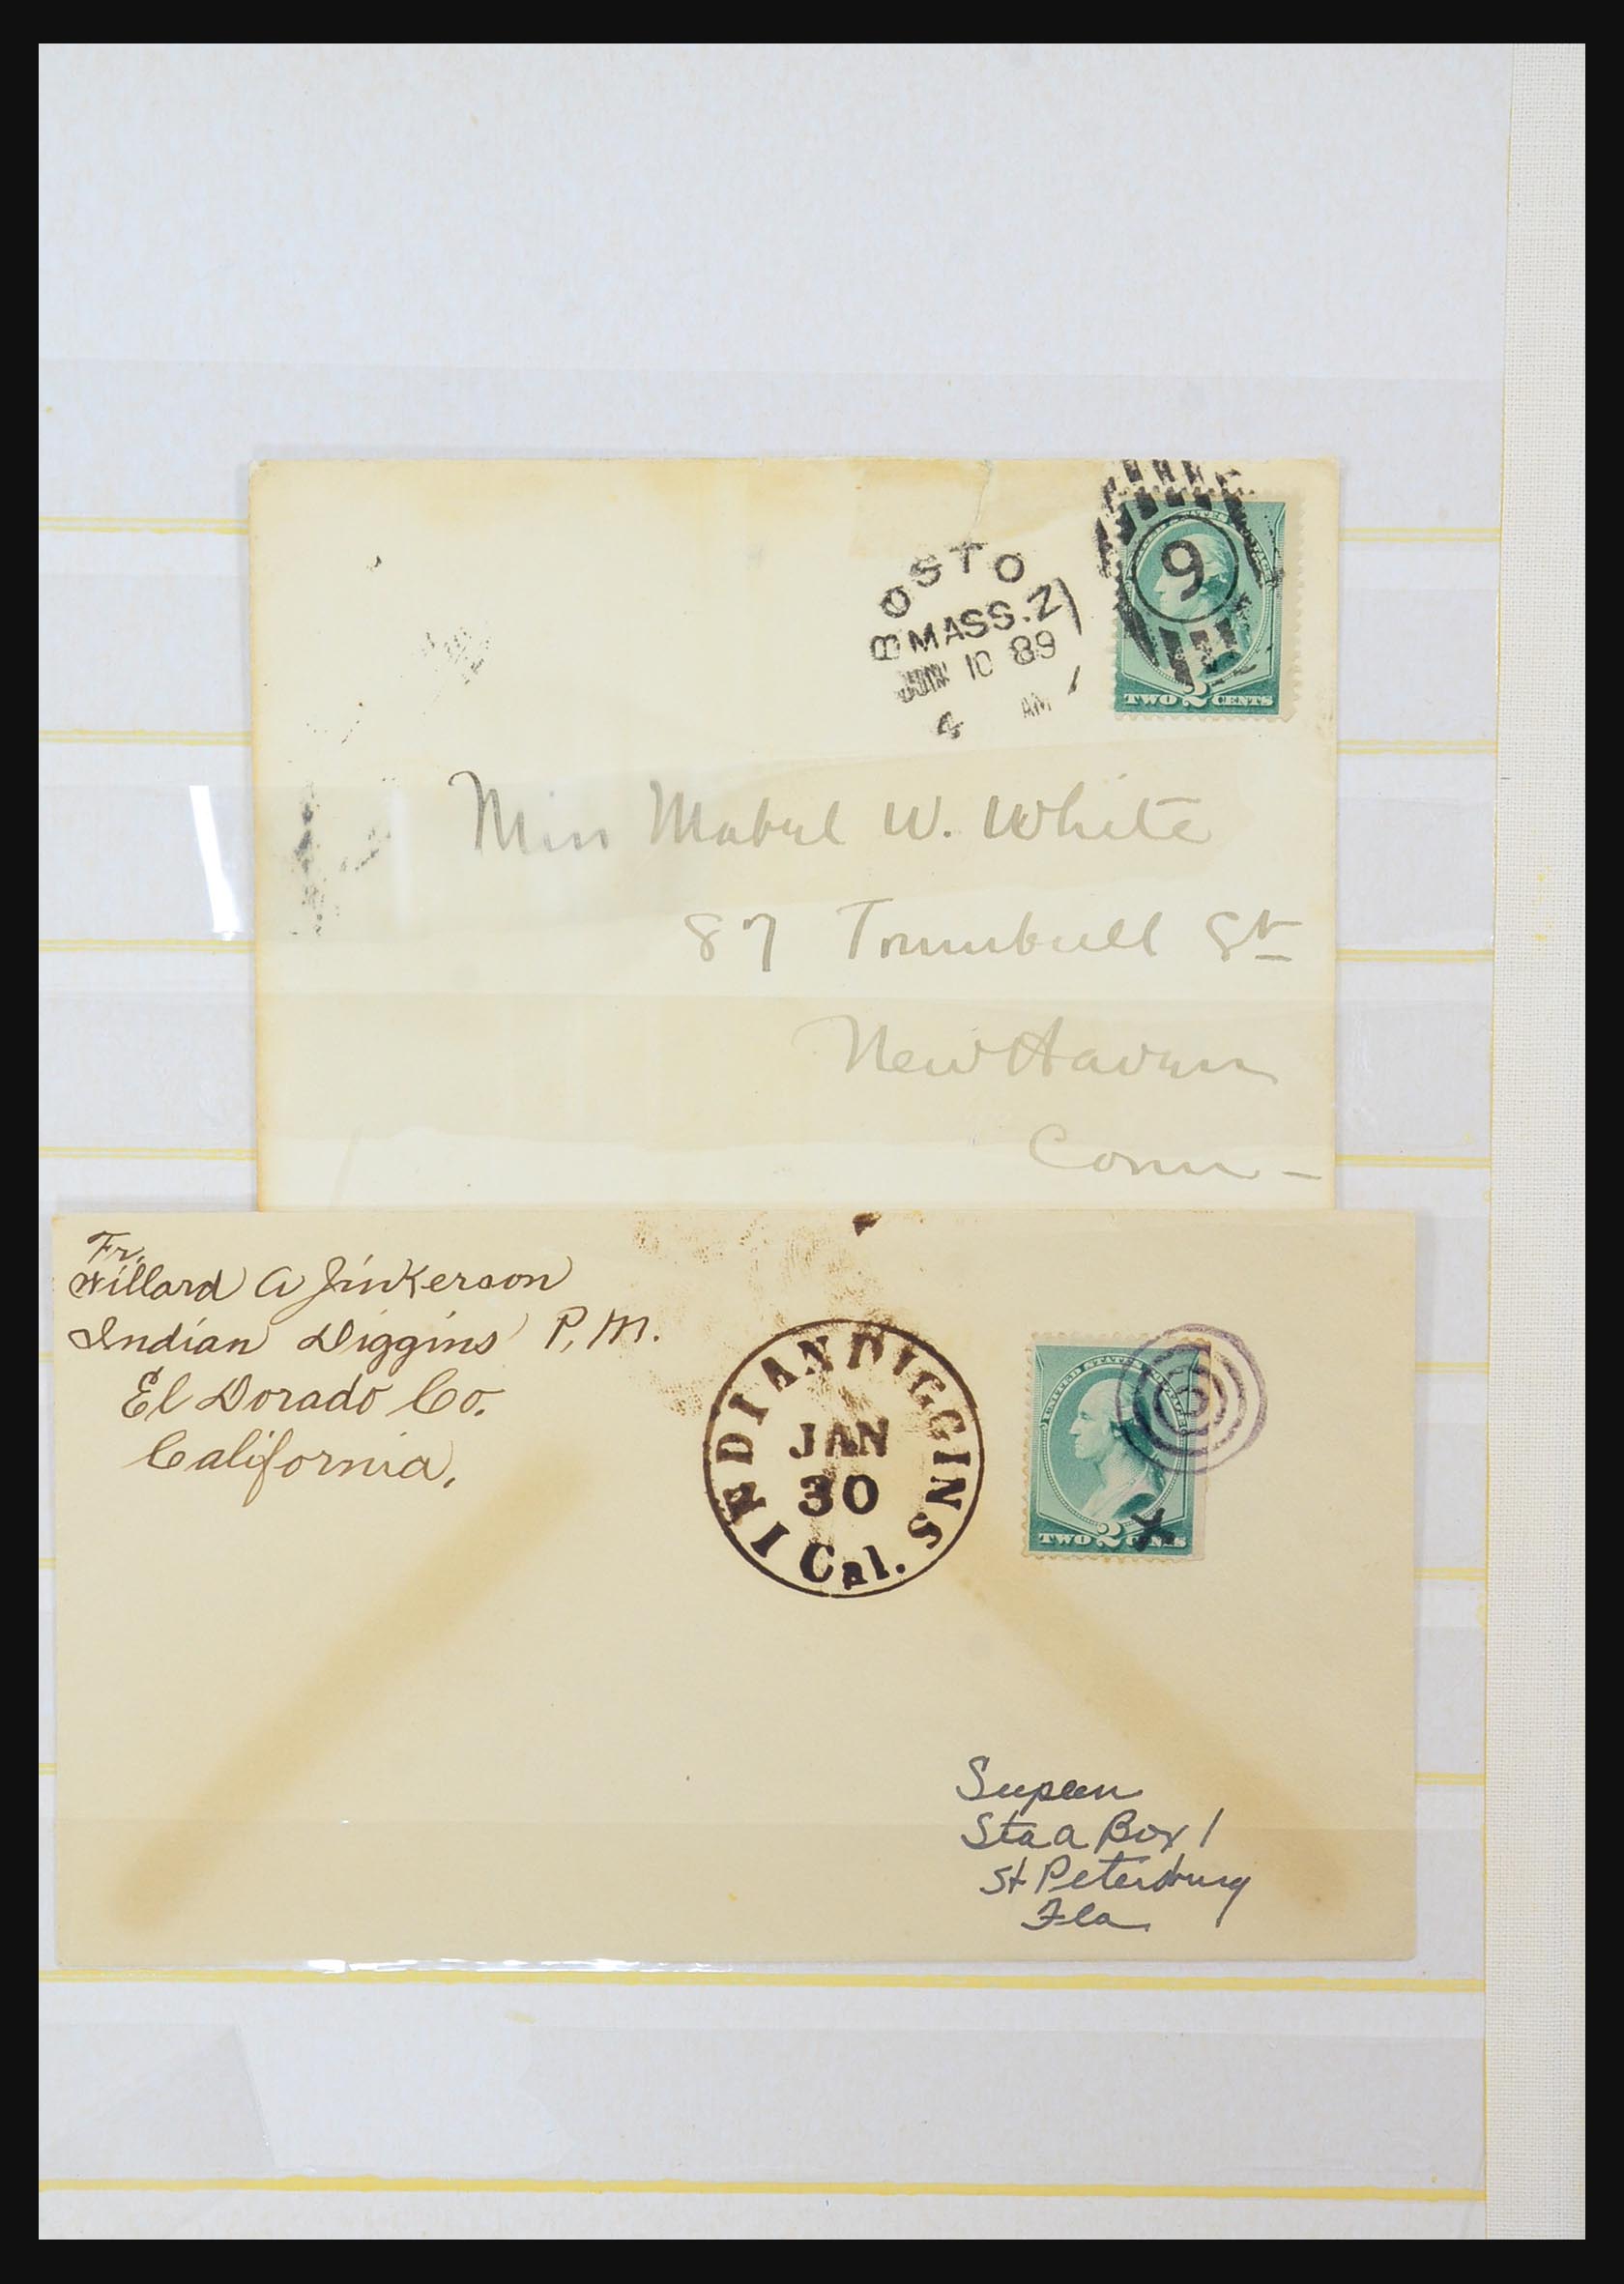 BOSTON
MASS.
JUN 10 89
4 AM
9
TWO 2 CENTS
Miss Mabel W. White
87 Trumbull St
New Haven
Conn -
Fr.
Willard A Jinkerson
Indian Diggins P.M.
El Dorado Co.
California.
INDIAN DIGGINS
JAN
30
Cal.
UNITED STATES
TWO 2 CENTS
Sta a Box 1
St Petersburg
Fla